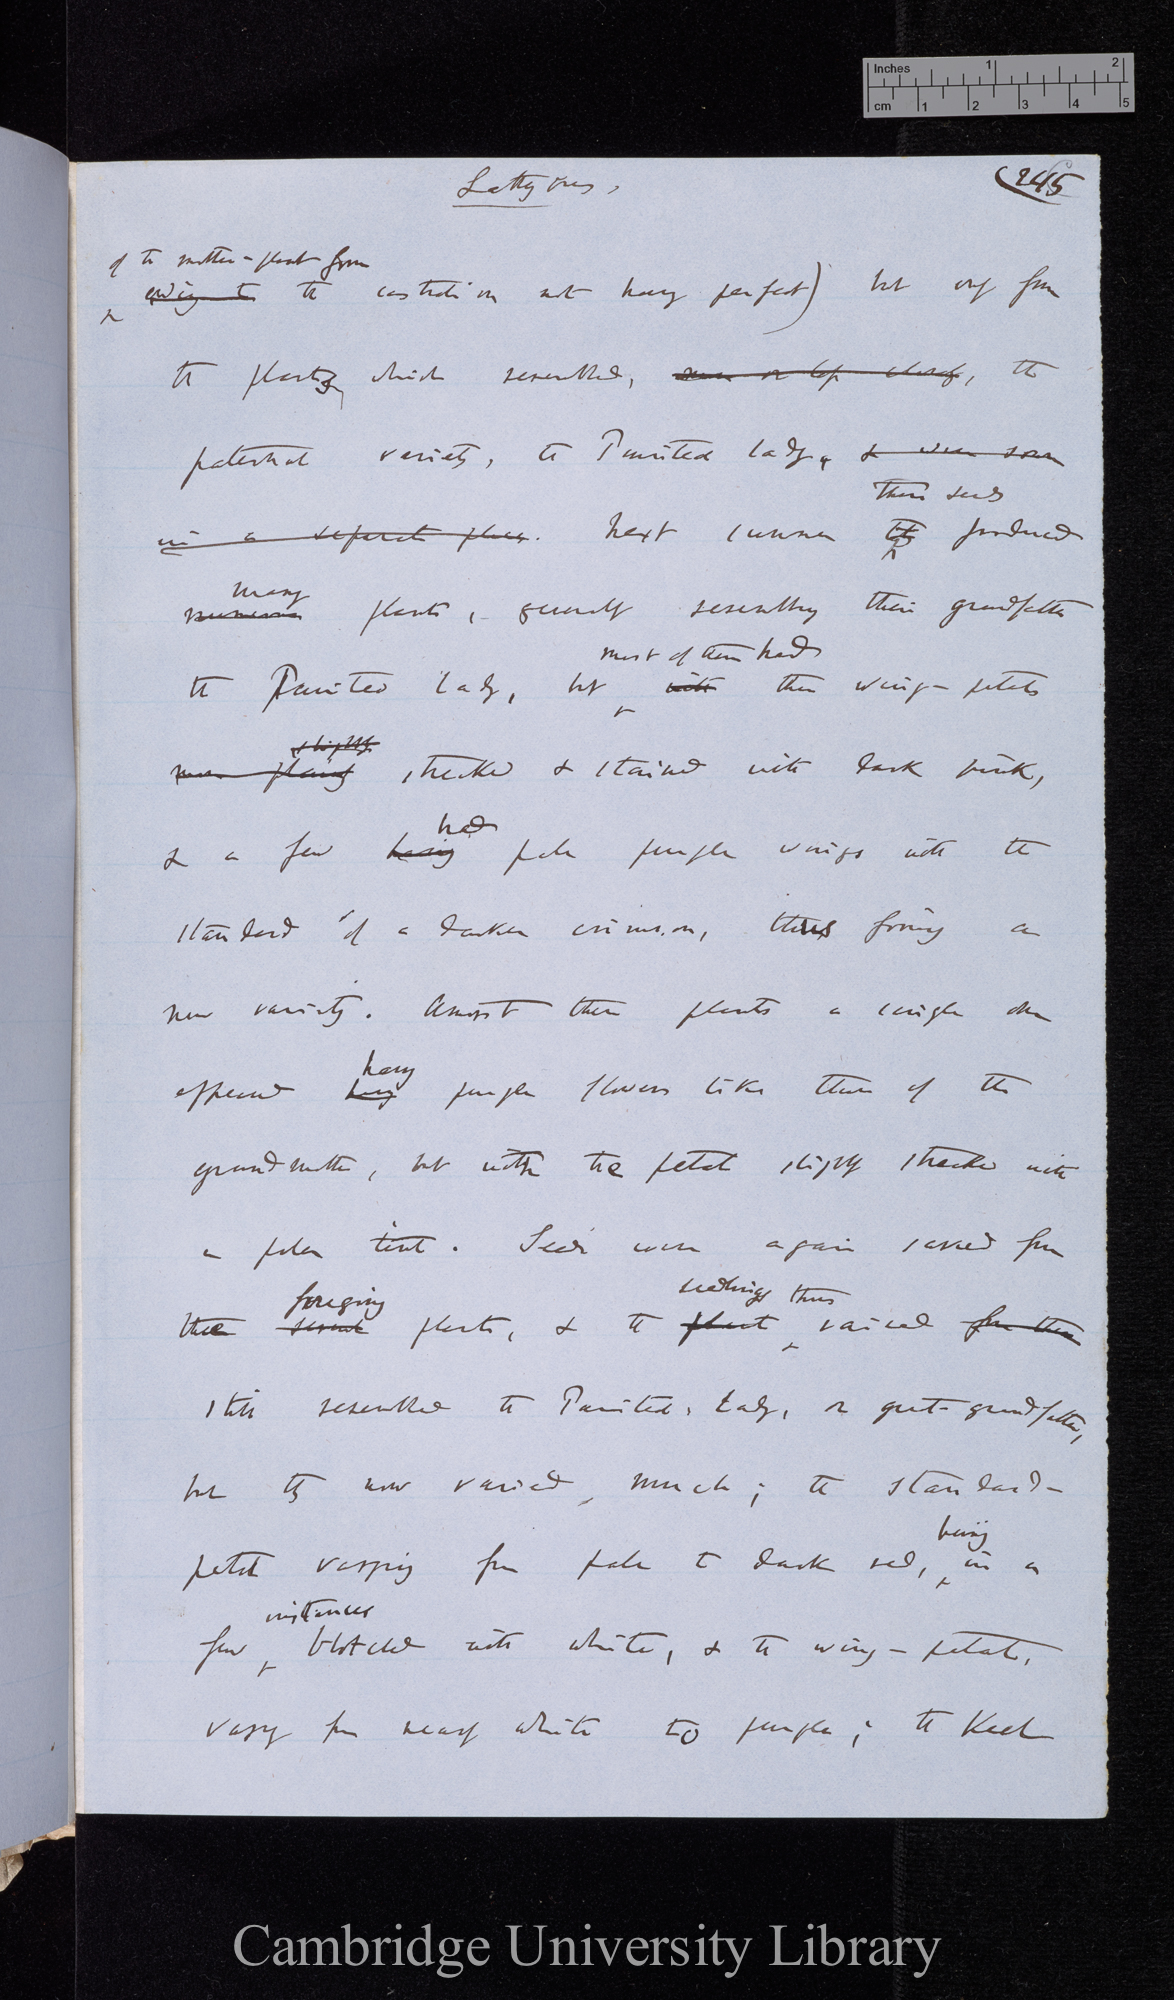 Inches 1 2
cm 1 2 3 4 5
Lathyrus.
245
of the mother-plant from
owing to the castration not having perfect) but only from
the plants, which resembled, more or less closely, the
paternal variety, the Painted Lady, & were sown
these seeds
in a separate place. Next summer produced
many
numerous plants, generally resembling their grandfather
most of them had
the Painted Lady, but with their wing-petals
slightly
more plainly streaked & stained with dark pink,
had
& a few having pale purple wings with the
standard of a darker crimson, thus forming a
new variety. Amongst these plants a single one
having
appeared having purple flowers like those of the
grandmother, but with the petals slightly streaked with
a paler tint. Seeds were again saved from
foregoing seedlings thus
these several plants, & the plants raised from them
still resembled the Painted Lady, or great-grandfather,
but they now varied much; the standard-
being
petal varying from pale to dark red, in a
instances
few blotched with white, & the wing-petals,
varying from nearly white to purple; the Keel
Cambridge University Library